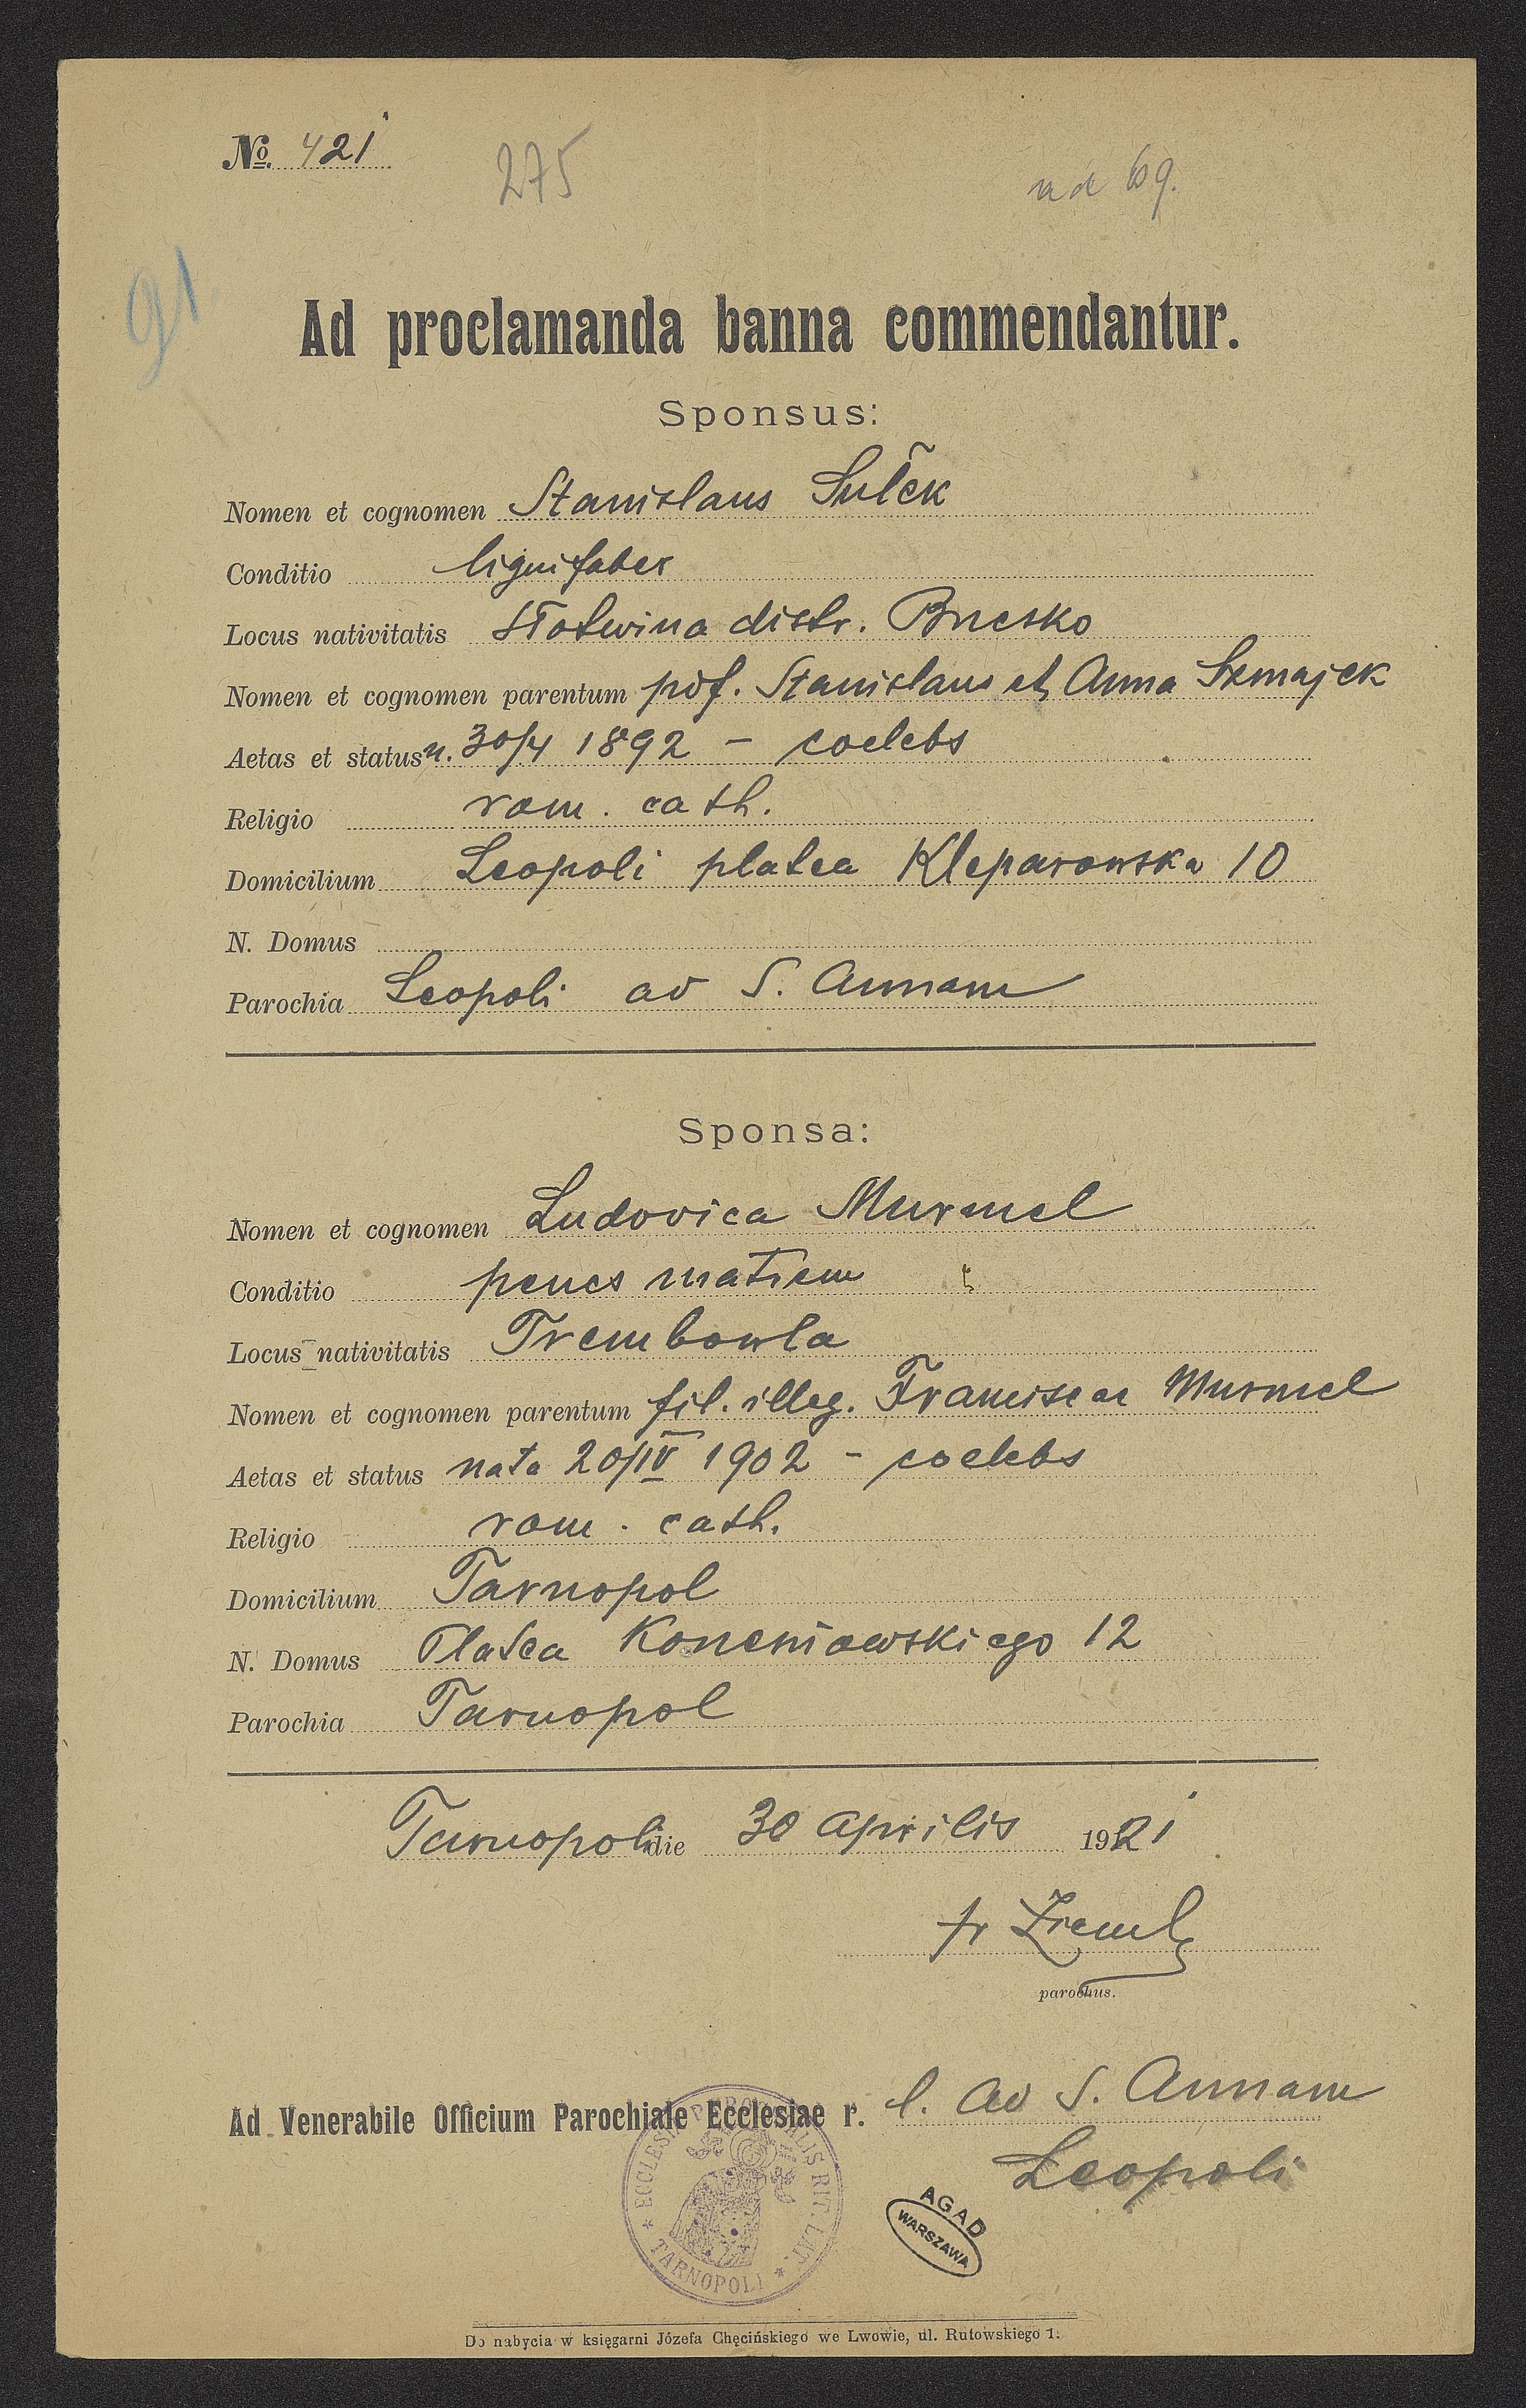 No. 421
275
ad 69.
91
Ad proclamanda banna commendantur.
Sponsus:
Nomen et cognomen Stanislaus Sułek
Conditio lignifaber
Locus nativitatis Słotwina distr. Brzesko
Nomen et cognomen parentum pdf. Stanislaus et Anna Szmajek
Aetas et status n. 30/4 1892 – coelebs
Religio rom. cath.
Domicilium Leopoli platea Kleparowska 10
N. Domus
Parochia Leopoli ad S. Annam
Sponsa:
Nomen et cognomen Ludovica Murmel
Conditio penes matrem
Locus nativitatis Trembowla
Nomen et cognomen parentum fil. illeg. Franciscae Murmel
Aetas et status nata 20/IV 1902 – coelebs
Religio rom. cath.
Domicilium Tarnopol
N. Domus Platea 12
Parochia Tarnopol
Tarnopoli die 30 Aprilis 1921
parochus.
Ad Venerabile Officium Parochiale Ecclesiae r. l. ad S. Annam
Leopoli
ECCLESIA PAROCHIALIS RIT. LAT. * TARNOPOLI *
AGAD
WARSZAWA
Do nabycia w księgarni Józefa Chęcińskiego we Lwowie, ul. Rutowskiego 1.